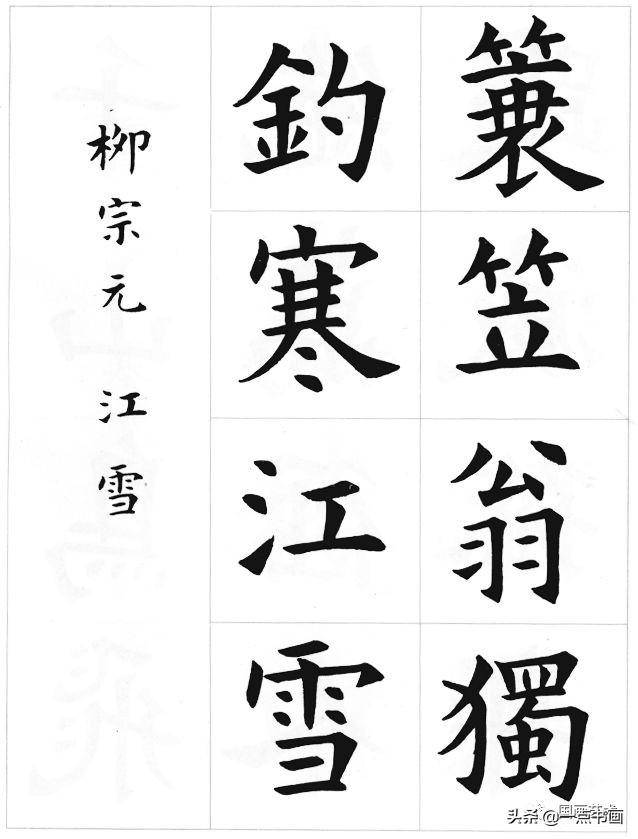 簑笠翁獨
釣寒江雪
柳宗元 江雪
头条 @一点书画